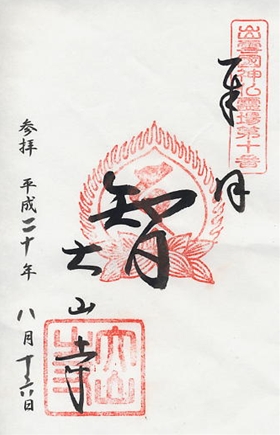 出雲國神仏靈場第十番
智
大山寺
大山寺
参拝 平成二十年 八月十六日